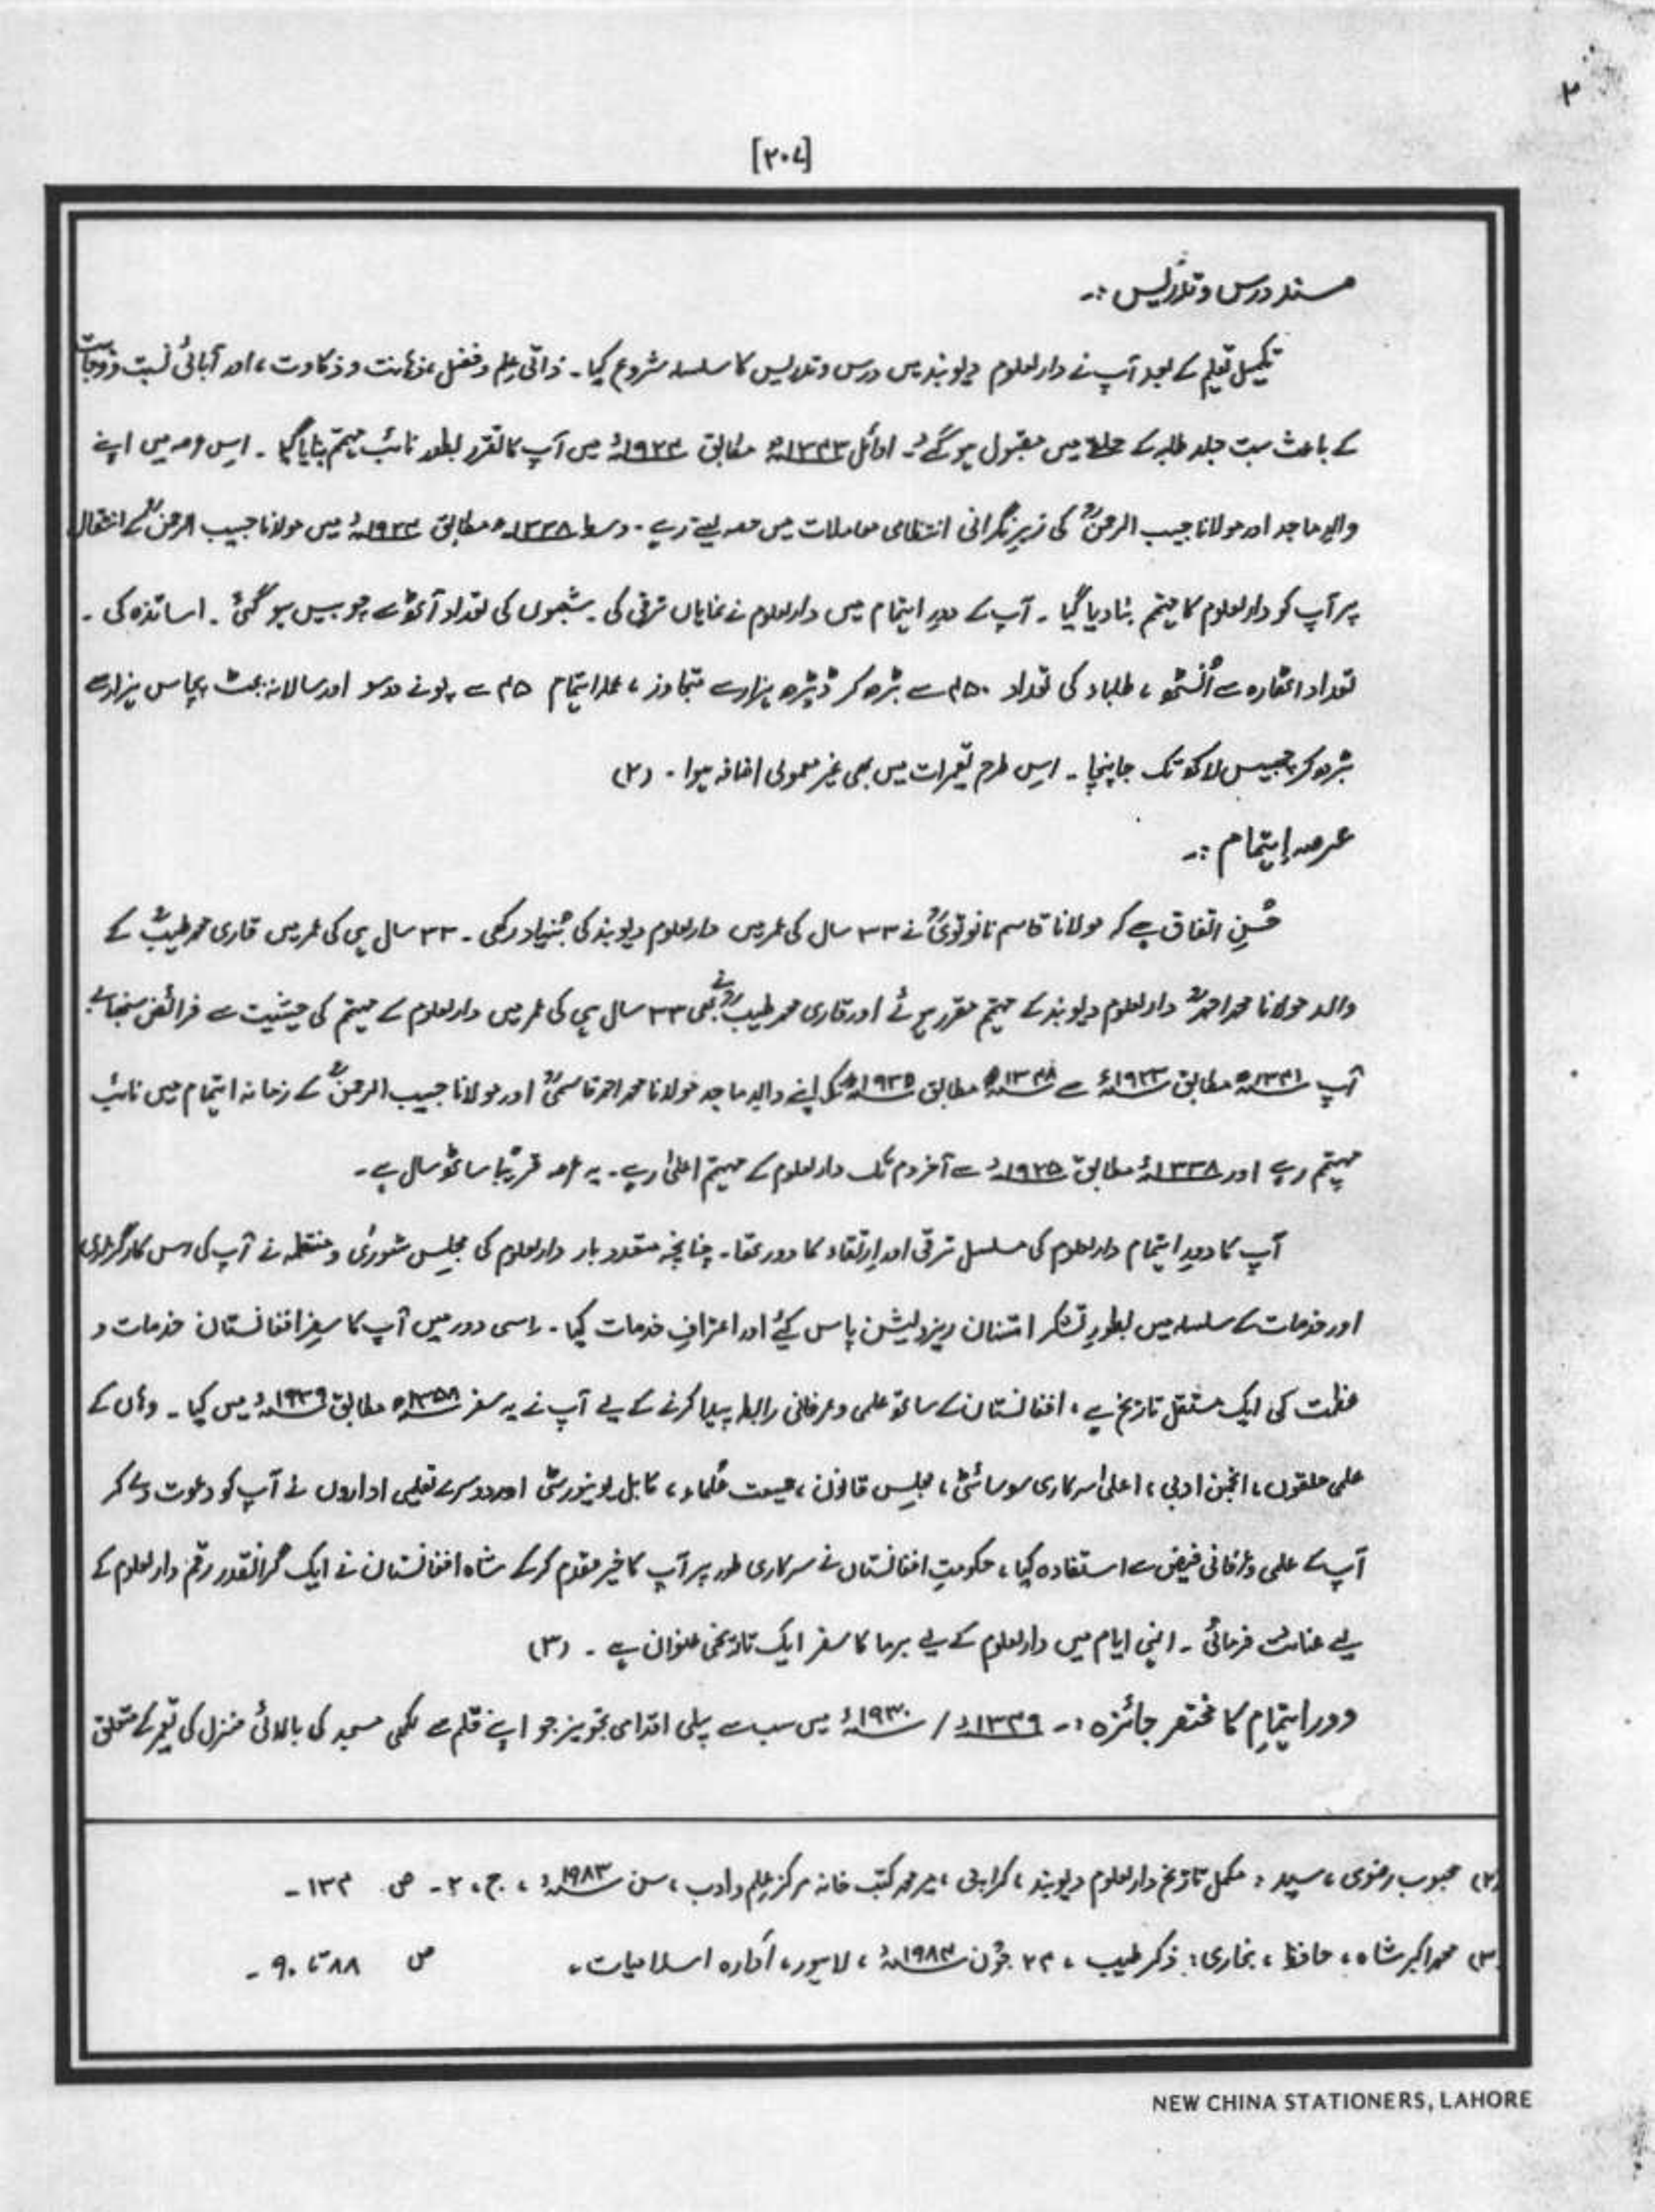 [۲۰۷]
مسند درس و تدریس :۔
تکمیل تعلیم کے بعد آپ نے دارالعلوم دیوبند میں درس و تدریس کا سلسلہ شروع کیا ۔ ذاتی علم و فضل ، ذہانت و ذکاوت ، اور آبائی نسبت و وجاہت
کے باعث بہت جلد طلبہ کے حلقے میں مقبول ہو گئے ۔ اوائل ۱۳۴۳ھ مطابق ۱۹۲۴ء میں آپ کا تقرر بطور نائب مہتمم بنایا گیا ۔ اس عرصہ میں اپنے
والدِ ماجد اور مولانا حبیب الرحمنؒ کی زیرِ نگرانی انتظامی معاملات میں حصہ لیتے رہے ۔ وسط ۱۳۳۸ھ مطابق ۱۹۲۴ء میں مولانا حبیب الرحمنؒ کے انتقال
پر آپ کو دارالعلوم کا مہتمم بنا دیا گیا ۔ آپ کے دورِ اہتمام میں دارالعلوم نے نمایاں ترقی کی ۔ شعبوں کی تعداد آٹھ سے چوبیس ہو گئی ۔ اساتذہ کی ۔
تعداد اٹھارہ سے اُنسٹھ ، طلباء کی تعداد ۴۵۰ سے بڑھ کر ڈیڑھ ہزار سے متجاوز ، عملہ اہتمام ۴۵ سے پونے دو سو اور سالانہ بجٹ پچاس ہزار سے
بڑھ کر چھبیس لاکھ تک جا پہنچا ۔ اس طرح تعمیرات میں بھی غیر معمولی اضافہ ہوا ۔ (۲)
عرصہ اہتمام :۔
حُسنِ اتفاق ہے کہ مولانا قاسم نانوتویؒ نے ۳۳ سال کی عمر میں دارالعلوم دیوبند کی بنیاد رکھی ۔ ۳۳ سال ہی کی عمر میں قاری محمد طیبؒ کے
والد مولانا محمد احمدؒ دارالعلوم دیوبند کے مہتمم مقرر ہوئے اور قاری محمد طیبؒ نے بھی ۳۳ سال ہی کی عمر میں دارالعلوم کے مہتمم کی حیثیت سے فرائض سنبھالے
آپ ۱۳۴۱ھ مطابق ۱۹۲۳ء سے ۱۳۴۸ھ مطابق ۱۹۲۵ء تک اپنے والدِ ماجد مولانا محمد احمد قاسمیؒ اور مولانا حبیب الرحمنؒ کے زمانہ اہتمام میں نائب
مہتمم رہے اور ۱۳۳۸ء مطابق ۱۹۲۵ء سے آخر دم تک دارالعلوم کے مہتمم اعلیٰ رہے ۔ یہ عرصہ قریبًا ساٹھ سال ہے ۔
آپ کا دورِ اہتمام دارالعلوم کی مسلسل ترقی اور ارتقاء کا دور تھا ۔ چنانچہ متعدد بار دارالعلوم کی مجلس شوریٰ و منتظمہ نے آپ کی اس کارگزاری
اور خدمات کے سلسلہ میں بطورِ تشکر امتنان ریزولیشن پاس کیے اور اعترافِ خدمات کیا ۔ اسی دور میں آپ کا سفرِ افغانستان خدمات و
عظمت کی ایک مستقل تاریخ ہے ، افغانستان کے ساتھ علمی و عرفانی رابطہ پیدا کرنے کے لیے آپ نے یہ سفر ۱۳۵۸ھ مطابق ۱۹۳۹ء میں کیا ۔ وہاں کے
علمی حلقوں ، انجمن ادبی ، اعلیٰ سرکاری سوسائٹی ، مجلس قانون ، جمیعت علماء ، کابل یونیورسٹی اور دوسرے تعلیمی اداروں نے آپ کو دعوت دے کر
آپ کے علمی و عرفانی فیض سے استفادہ کیا ، حکومتِ افغانستان نے سرکاری طور پر آپ کا خیر مقدم کر کے شاہ افغانستان نے ایک گرانقدر رقم دارالعلوم کے
لیے عنایت فرمائی ۔ انہی ایام میں دارالعلوم کے لیے برما کا سفر ایک تاریخی عنوان ہے ۔ (۳)
دور اہتمام کا مختصر جائزہ :۔ ۱۳۴۹ء / ۱۹۳۰ء میں سب سے پہلی اقدامی تجویز جو اپنے قلم سے لکھی مسجد کی بالائی منزل کی تعمیر کے متعلق
(۲) محبوب رضوی ، سید : مکمل تاریخ دارالعلوم دیوبند ، کراچی ، میر محمد کتب خانہ مرکز علم و ادب ، سن ۱۹۸۳ء ، ج ، ۲ ۔ ص ۱۳۴ ۔
(۳) محمد اکبر شاہ ، حافظ ، بخاری : ذکر طیب ، ۲۴ جون ۱۹۸۴ء ، لاہور ، ادارہ اسلامیات ، ص ۸۸ تا ۹۰ ۔
NEW CHINA STATIONERS, LAHORE